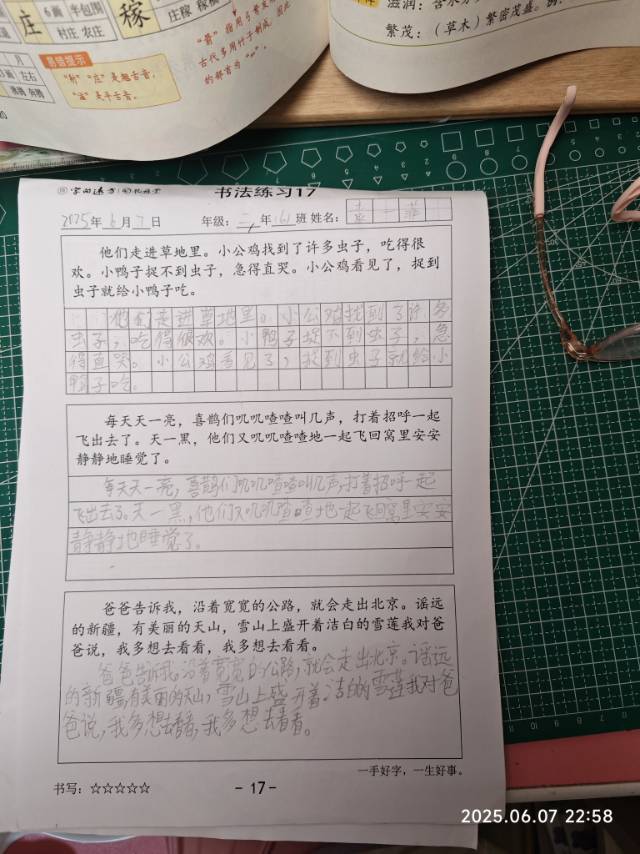 庄
6画 半包围
村庄 农庄
稼
庄稼 稼穑
易错提示
"庄"是翘舌音。
"滋"是平舌音。
古代多用竹子制成，因此
的部首为"⺮"。
滋润：含水分多
繁茂：（草木）繁密茂盛。例：
书法练习17
2025年6月7日 年级：二年（6）班 姓名：袁一菲
他们走进草地里。小公鸡找到了许多虫子，吃得很
欢。小鸭子捉不到虫子，急得直哭。小公鸡看见了，捉到
虫子就给小鸭子吃。
他们走进草地里。小公鸡找到了许多
虫子，吃得很欢。小鸭子捉不到虫子，急
得直哭。小公鸡看见了，捉到虫子就给小
鸭子吃。
每天天一亮，喜鹊们叽叽喳喳叫几声，打着招呼一起
飞出去了。天一黑，他们又叽叽喳喳地一起飞回窝里安安
静静地睡觉了。
每天天一亮，喜鹊们叽叽喳喳叫几声，打着招呼一起
飞出去了。天一黑，他们又叽叽喳喳地一起飞回窝里安安
静静地睡觉了。
爸爸告诉我，沿着宽宽的公路，就会走出北京。谣远
的新疆，有美丽的天山，雪山上盛开着洁白的雪莲我对爸
爸说，我多想去看看，我多想去看看。
爸爸告诉我，沿着宽宽的公路，就会走出北京。谣远
的新疆，有美丽的天山，雪山上盛开着洁白的雪莲我对爸
爸说，我多想去看看，我多想去看看。
一手好字，一生好事。
书写：☆☆☆☆☆
- 17 -
2025.06.07 22:58